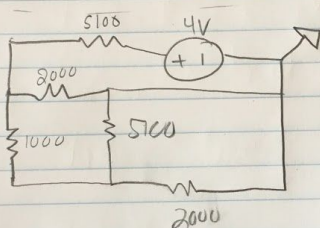 5100 4V
+ -
2000
1000 5100
2000